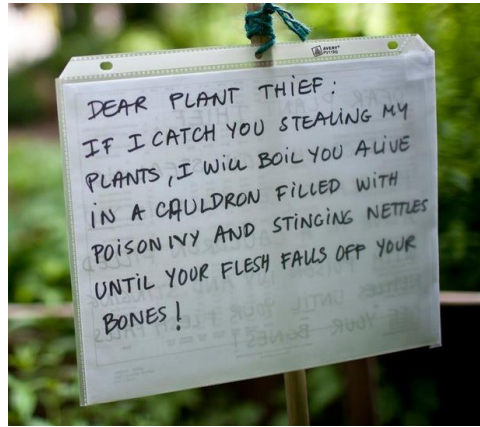 AVERY®
DEAR PLANT THIEF:
IF I CATCH YOU STEALING MY
PLANTS, I WILL BOIL YOU ALIVE
IN A CAULDRON FILLED WITH
POISON IVY AND STINGING NETTLES
UNTIL YOUR FLESH FALLS OFF YOUR
BONES!